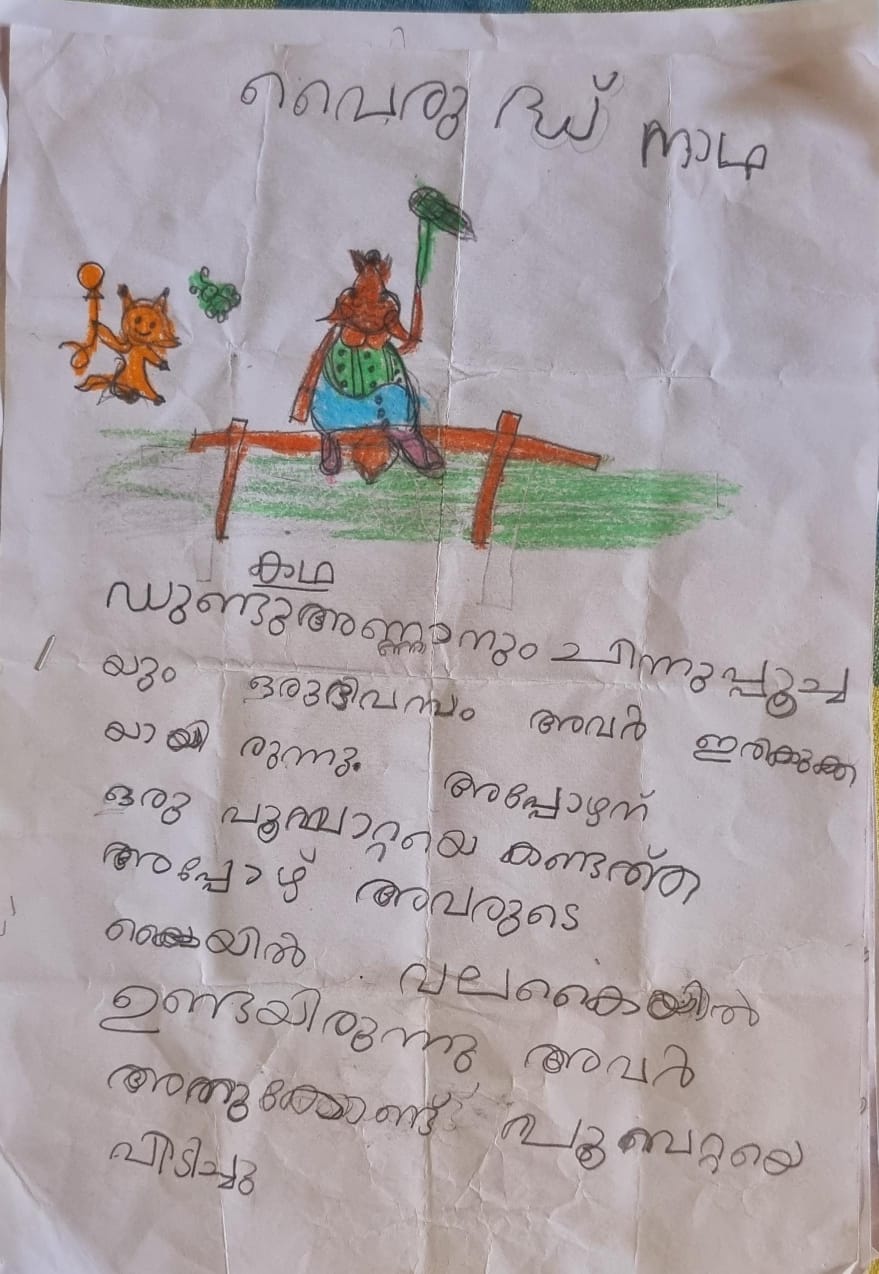 വൈരുദ്ധ് നാഥ
കഥ
ഡുണ്ടുഅണ്ണാനും ചിന്നുപ്പൂച്ച
യും ഒരുദിവസം അവർ ഇരിക്കുക
യായി രുന്നു. അപ്പോഴന്
ഒരു പൂമ്പാറ്റയെ കണ്ടത്ത
അപ്പോഴ് അവരുടെ
കൈയിൽ വലകൈയിൽ
ഉണ്ടയിരുന്നു അവർ
അതുകൊണ്ട് പൂബറ്റയെ
പിടിച്ചു